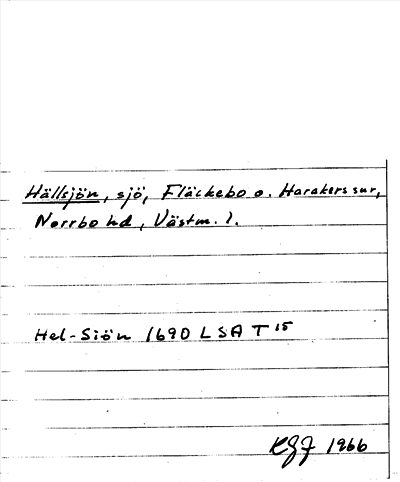 Hällsjön, sjö, Fläckebo o. Harakers snr,
Norrbo hd, Västm. l.
Hel-Siön 1690 LSA T 15
KGJ 1966